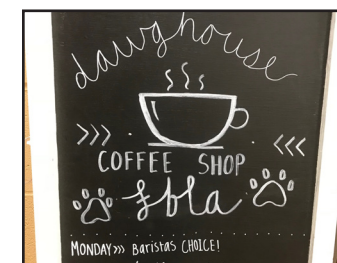 dawghouse
>>> · · <<<
COFFEE SHOP
fbla
MONDAY>>> Baristas CHOICE!